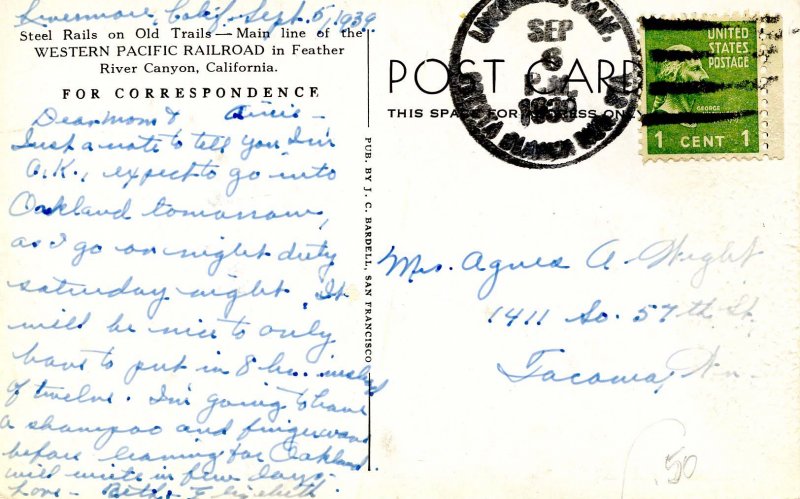 Livermore, Calif. Sept. 5, 1939
Steel Rails on Old Trails — Main line of the
WESTERN PACIFIC RAILROAD in Feather
River Canyon, California.
FOR CORRESPONDENCE
Dear Mom &
Just a note to tell you I'm
O.K., expect to go into
Oakland tomorrow,
as I go on night duty
saturday night. It
will be nice to only
have to put in 8 hr. instead
of twelve. I'm going to have
a shampoo and fingerwave
before leaving for Oakland.
will write in few days.
Love - Elizabeth
PUB. BY J. C. BARDELL, SAN FRANCISCO
POST CARD
THIS SPACE FOR ADDRESS ONLY
LIVERMORE, CALIF.
SEP
6
P.M.
1939
UNITED
STATES
POSTAGE
GEORGE
1 CENT 1
Mrs. Agnes A. Wight
1411 So. 57th St.
Tacoma, Wn.
.50